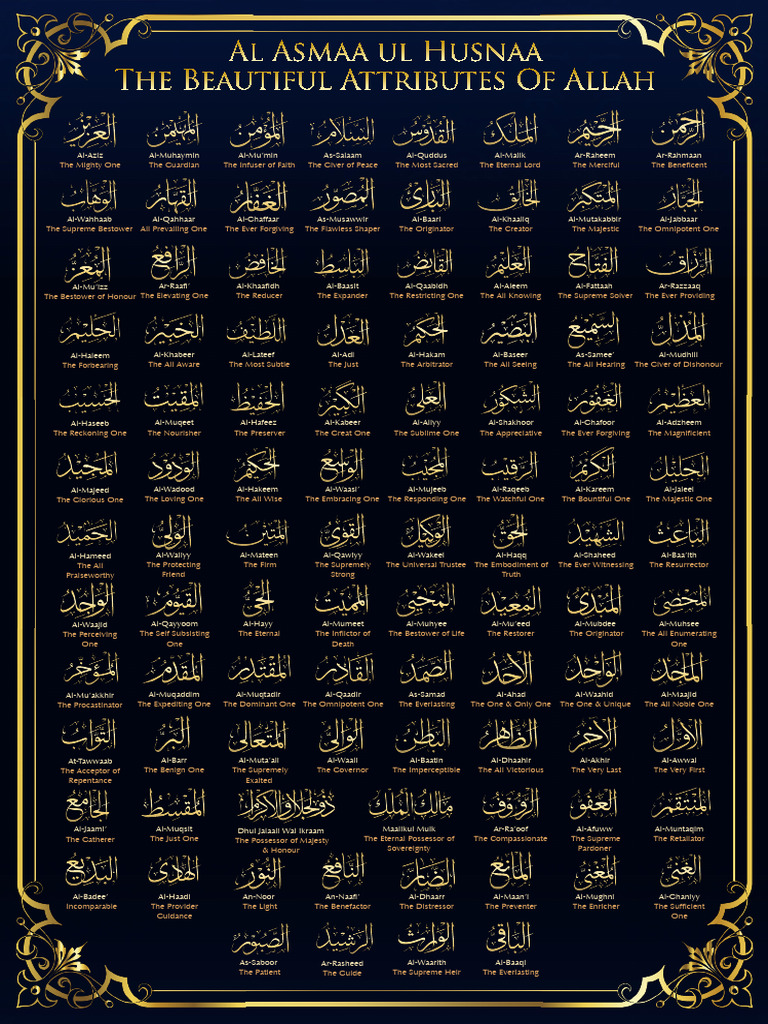 AL ASMAA UL HUSNAA
THE BEAUTIFUL ATTRIBUTES OF ALLAH
الرحمن
Ar-Rahmaan
The Beneficent
الرحيم
Ar-Raheem
The Merciful
الملك
Al-Malik
The Eternal Lord
القدوس
Al-Quddus
The Most Sacred
السلام
As-Salaam
The Giver of Peace
المؤمن
Al-Mu'min
The Infuser of Faith
المهيمن
Al-Muhaymin
The Guardian
العزيز
Al-Aziz
The Mighty One
الجبار
Al-Jabbaar
The Omnipotent One
المتكبر
Al-Mutakabbir
The Majestic
الخالق
Al-Khaaliq
The Creator
البارئ
Al-Baari
The Originator
المصور
As-Musawwir
The Flawless Shaper
الغفار
Al-Ghaffaar
The Ever Forgiving
القهار
Al-Qahhaar
All Prevailing One
الوهاب
Al-Wahhaab
The Supreme Bestower
الرزاق
Ar-Razzaaq
The Ever Providing
الفتاح
Al-Fattaah
The Supreme Solver
العليم
Al-Aleem
The All Knowing
القابض
Al-Qaabidh
The Restricting One
الباسط
Al-Baasit
The Expander
الخافض
Al-Khaafidh
The Reducer
الرافع
Ar-Raafi'
The Elevating One
المعز
Al-Mu'izz
The Bestower of Honour
المذل
Al-Mudhill
The Giver of Dishonour
السميع
As-Samee'
The All Hearing
البصير
Al-Baseer
The All Seeing
الحكم
Al-Hakam
The Arbitrator
العدل
Al-Adl
The Just
اللطيف
Al-Lateef
The Most Subtle
الخبير
Al-Khabeer
The All Aware
الحليم
Al-Haleem
The Forbearing
العظيم
Al-Adzheem
The Magnificient
الغفور
Al-Ghafoor
The Ever Forgiving
الشكور
Al-Shakhoor
The Appreciative
العلي
Al-Aliyy
The Sublime One
الكبير
Al-Kabeer
The Great One
الحفيظ
Al-Hafeez
The Preserver
المقيت
Al-Muqeet
The Nourisher
الحسيب
Al-Haseeb
The Reckoning One
الجليل
Al-Jaleel
The Majestic One
الكريم
Al-Kareem
The Bountiful One
الرقيب
Al-Raqeeb
The Watchful One
المجيب
Al-Mujeeb
The Responding One
الواسع
Al-Waasi'
The Embracing One
الحكيم
Al-Hakeem
The All Wise
الودود
Al-Wadood
The Loving One
المجيد
Al-Majeed
The Glorious One
الباعث
Al-Baa'ith
The Resurrector
الشهيد
Al-Shaheed
The Ever Witnessing
الحق
Al-Haqq
The Embodiment of
Truth
الوكيل
Al-Wakeel
The Universal Trustee
القوي
Al-Qawiyy
The Supremely
Strong
المتين
Al-Mateen
The Firm
الولي
Al-Waliyy
The Protecting
Friend
الحميد
Al-Hameed
The All
Praiseworthy
المحصي
Al-Muhsee
The All Enumerating
One
المبدئ
Al-Mubdee
The Originator
المعيد
Al-Mu'eed
The Restorer
المحيي
Al-Muhyee
The Bestower of Life
المميت
Al-Mumeet
The Inflictor of
Death
الحي
Al-Hayy
The Eternal
القيوم
Al-Qayyoom
The Self Subsisting
One
الواجد
Al-Waajid
The Perceiving
One
الماجد
Al-Maajid
The All Noble One
الواحد
Al-Waahid
The One & Unique
الأحد
Al-Ahad
The One & Only One
الصمد
As-Samad
The Everlasting
القادر
Al-Qaadir
The Omnipotent One
المقتدر
Al-Muqtadir
The Dominant One
المقدم
Al-Muqaddim
The Expediting One
المؤخر
Al-Mu'akkhir
The Procastinator
الأول
Al-Awwal
The Very First
الآخر
Al-Akhir
The Very Last
الظاهر
Al-Dhaahir
The All Victorious
الباطن
Al-Baatin
The Imperceptible
الوالي
Al-Waali
The Governor
المتعالي
Al-Muta'ali
The Supremely
Exalted
البر
Al-Barr
The Benign One
التواب
At-Tawwaab
The Acceptor of
Repentance
المنتقم
Al-Muntaqim
The Retaliator
العفو
Al-Afuww
The Supreme
Pardoner
الرؤوف
Ar-Ra'oof
The Compassionate
مالك الملك
Maalikul Mulk
The Eternal Possessor of
Sovereignty
ذو الجلال والإكرام
Dhul Jalaali Wal Ikraam
The Possessor of Majesty
& Honour
المقسط
Al-Muqsit
The Just One
الجامع
Al-Jaami'
The Gatherer
الغني
Al-Ghaniyy
The Sufficient
One
المغني
Al-Mughni
The Enricher
المانع
Al-Maan'i
The Preventer
الضار
Al-Dhaarr
The Distressor
النافع
An-Naafi'
The Benefactor
النور
An-Noor
The Light
الهادي
Al-Haadi
The Provider
Guidance
البديع
Al-Badee'
Incomparable
الباقي
Al-Baaqi
The Everlasting
الوارث
Al-Waarith
The Supreme Heir
الرشيد
Ar-Rasheed
The Guide
الصبور
As-Saboor
The Patient